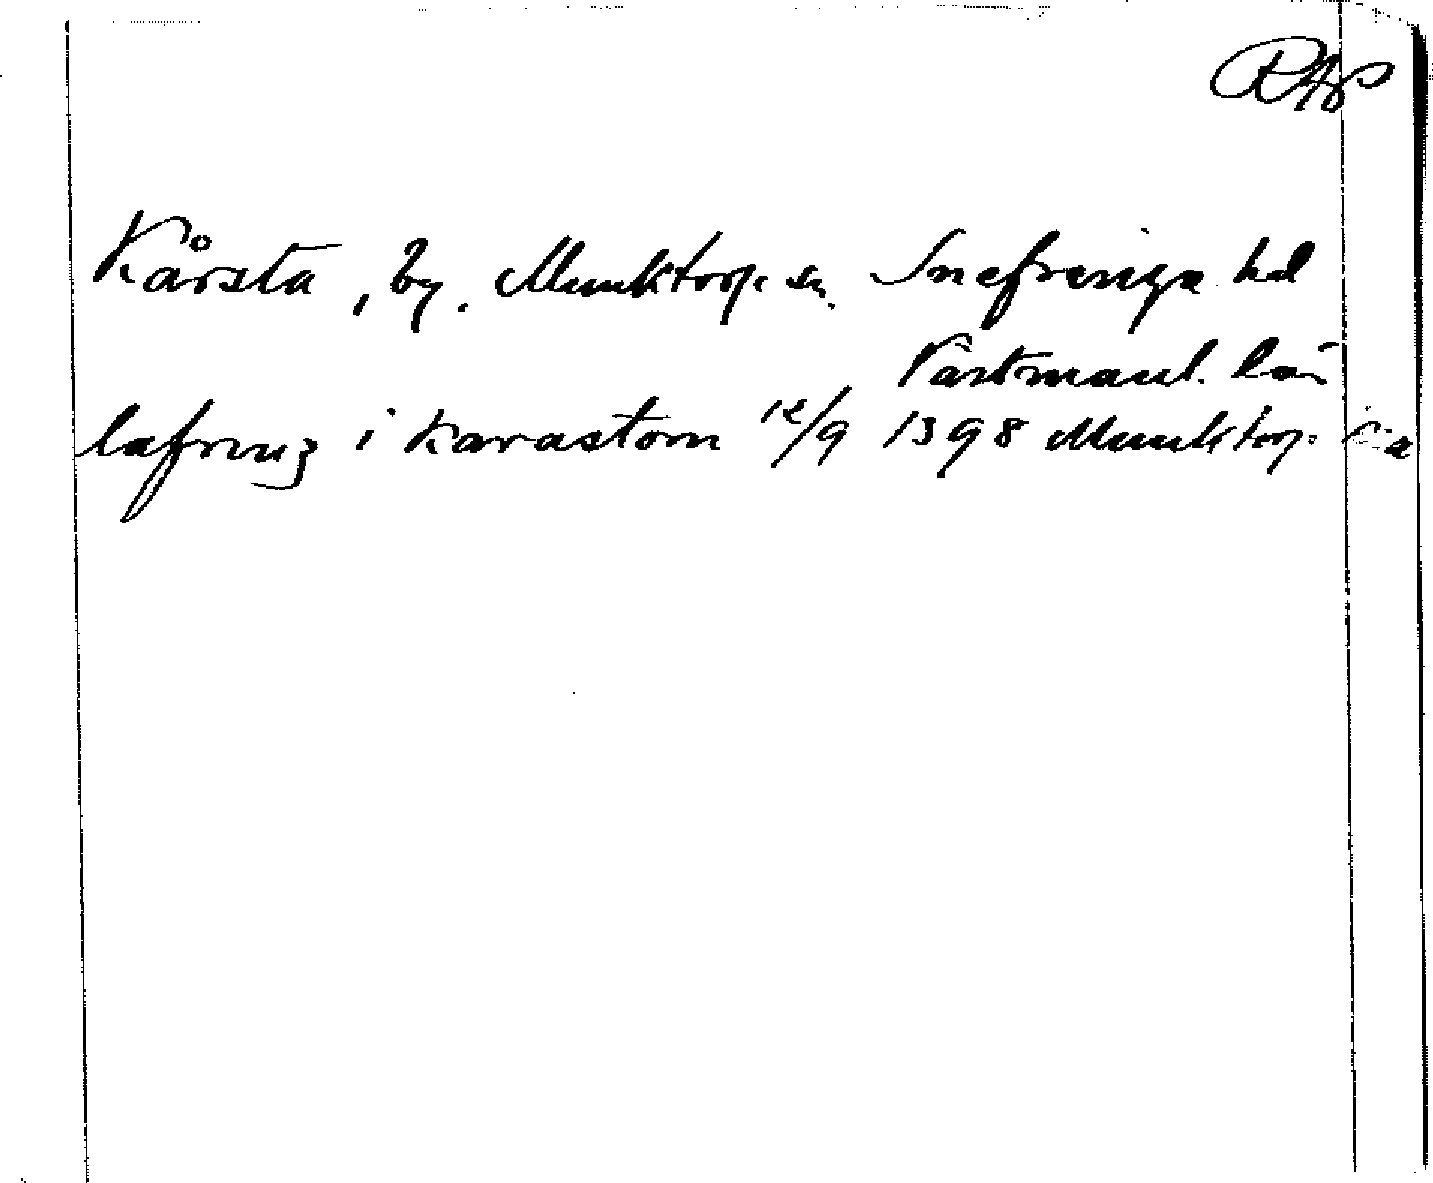 RAP
Kårsta, by. Munktorp. sn. Snefringe hd
Västmanl. län
lafrinz i karastom 12/9 1398 Munktorp